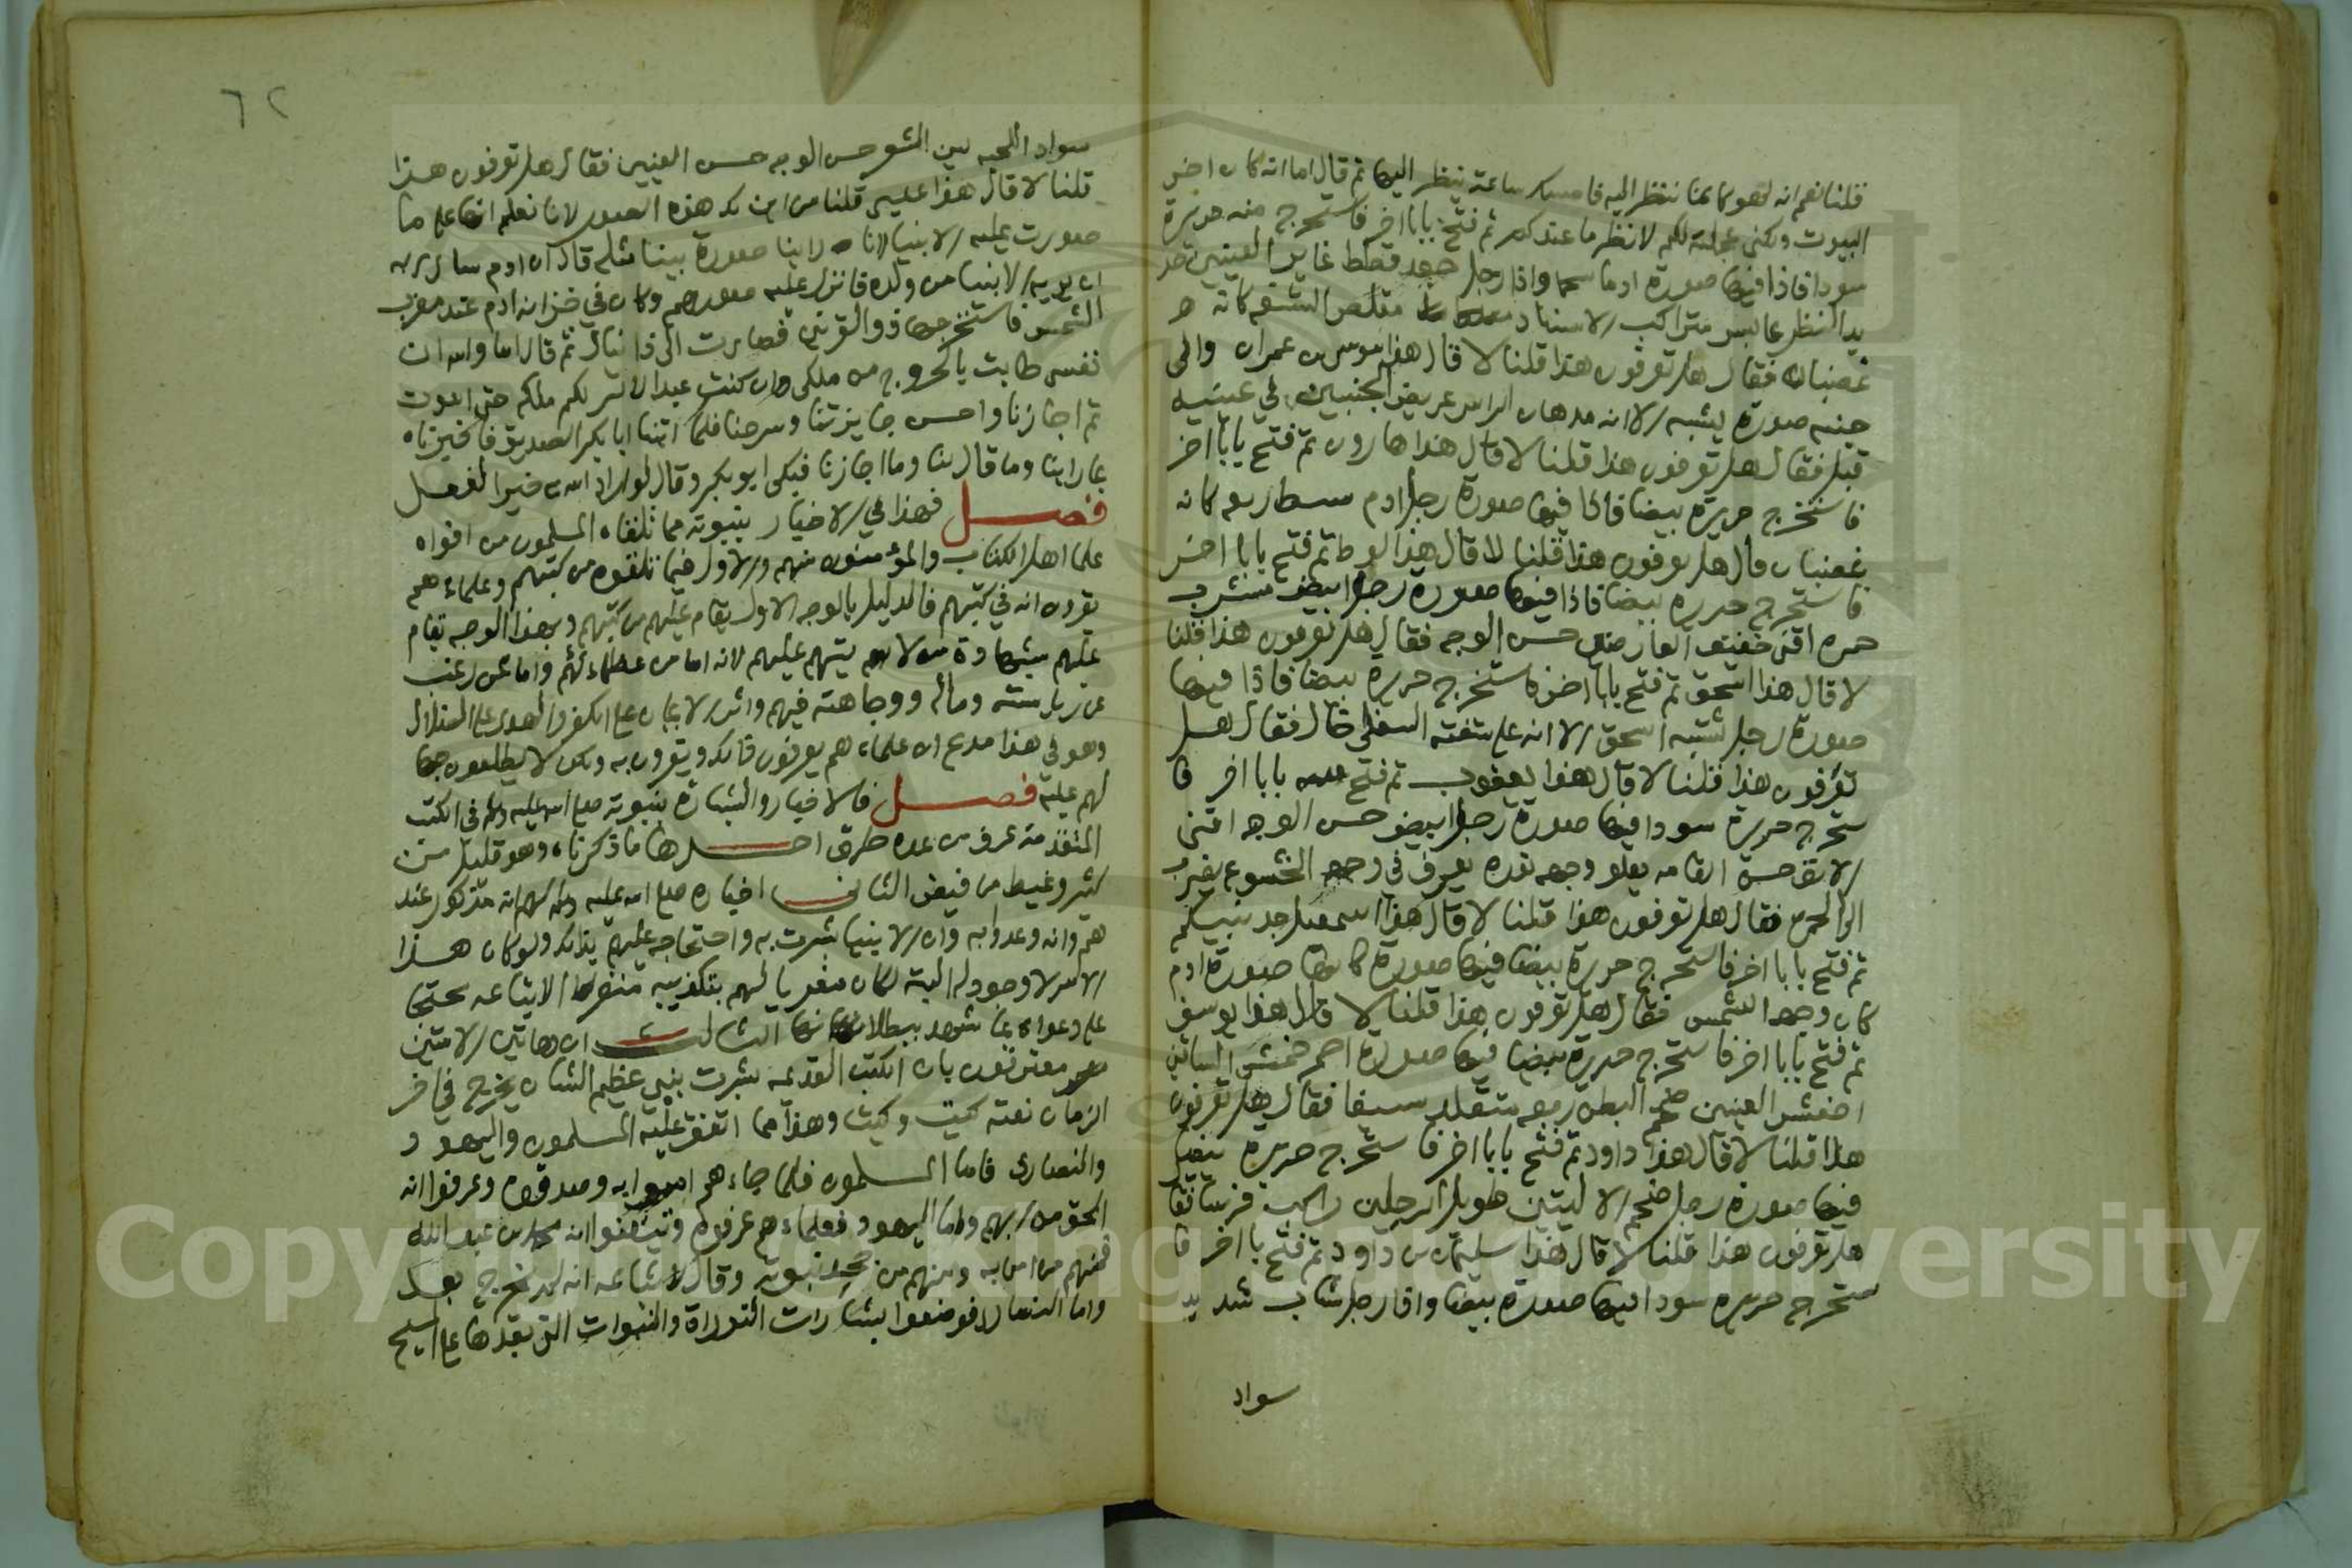 قلنا نعم انه لهو كانما ننظر اليه فامسك ساعة ينظر اليها ثم قال اما انه كان اخر
البيوت ولكني عجلته لكم لانظر ما عندكم ثم فتح بابا اخر فاستخرج منه حريرة
سودا فاذا فيها صورة ادما سحما واذا رجل جعد قطط غاير العينين حد
يد النظر عابس متراكب الاسنان مقلص الشفه كانه
غضبان فقال هل تعرفون هذا قلنا لا قال هذا موسى بن عمران والى
جنبه صورة تشبهه الا انه مدهان الراس عريض الجبين في عينيه
قبل فقال هل تعرفون هذا قلنا لا قال هذا هارون ثم فتح بابا اخر
فاستخرج حريرة بيضا فاذا فيها صورة رجل ادم سبط ربعه كانه
غضبان قال هل تعرفون هذا قلنا لا قال هذا لوط ثم فتح بابا اخر
فاستخرج حريرة بيضا فاذا فيها صورة رجل ابيض مشرب
حمره اقنى خفيف العارضين حسن الوجه فقال هل تعرفون هذا قلنا
لا قال هذا اسحق ثم فتح بابا اخر فاستخرج حريرة بيضا فاذا فيها
صورة رجل تشبه اسحق الا انه على شفته السفلى خال فقال هل
تعرفون هذا قلنا لا قال هذا يعقوب ثم فتح بابا اخر فا
ستخرج حريرة سودا فيها صورة رجل ابيض حسن الوجه اقنى
الانف حسن القامه يعلو وجهه نوره يعرف في وجهه الخشوع يضرب
الى الحمره فقال هل تعرفون هذا قلنا لا قال هذا اسمعيل جد نبيكم
ثم فتح بابا اخر فاستخرج حريرة بيضا فيها صورة كانها صورة ادم
كان وجهه الشمس فقال هل تعرفون هذا قلنا لا قال هذا يوسف
ثم فتح بابا اخر فاستخرج حريرة بيضا فيها صورة احمر حمش الساقين
اخفش العينين ضخم البطن ربعه متقلد سيفا فقال هل تعرفون
هذا قلنا لا قال هذا داود ثم فتح بابا اخر فاستخرج حريرة بيضا
فيها صورة رجل ضخم الاليتين طويل الرجلين راكب فرسا فقا
هل تعرفون هذا قلنا لا قال هذا سليمان بن داود ثم فتح بابا اخر فا
ستخرج حريره سودا فيها صورة بيضا واذا رجل شاب شديد
سواد
٦٢
سواد اللحيه لين الشعر حسن الوجه حسن العينين فقال هل تعرفون هذا
قلنا لا قال هذا عيسى قلنا من اين لك هذه الصور لانا نعلم انها على ما
صورت عليه الانبيا لانا راينا صورة نبينا مثله قال ان ادم سال ربه
ان يريه الانبيا من ولده فانزل عليه صورهم وكان في خزانه ادم عند مغرب
الشمس فاستخرجها ذو القرنين فصارت الى دانيال ثم قال اما والله ان
نفسي طابت بالخروج من ملكي وان كنت عبدا لاشركم ملكه حتى اموت
ثم اجازنا واحسن جايزتنا وسرحنا فلما اتينا ابا بكر الصديق فاخبرناه
بما راينا وما قال لنا وما اجازنا فبكى ابو بكر وقال لو اراد الله به خيرا لفعل
فصل فهذا في الاخبار بنبوته مما تلقاه المسلمون من افواه
علما اهل الكتاب والمؤمنون منهم والاول فيما تلقوه من كتبهم وعلماءهم
يقرون انه في كتبهم فالدليل بالوجه الاول يقام عليهم من كتبهم وبهذا الوجه يقام
عليهم بشهادة من لا يتهم عليهم لانه اما من عظماءهم واما ممن رغب
عن رياسته وماله ووجاهته فيهم واثر الايمان على الكفر والهدى على الضلال
وهو في هذا مدع ان علماءهم يعرفون ذلك ويقرون به ولكن لا يطلعون جها
لهم عليه فصل فالاخبار والبشارة بنبوته صلى الله عليه وسلم في الكتب
المتقدمة عرف من عدة طرق احدها ما ذكرناه وهو قليل من
كثير وغيض من فيض الثاني اخباره صلى الله عليه وسلم لهم انه مذكور عند
هم وانه وعدوا به وان الانبيا بشرت به واحتجاجه عليهم بذلك ولو كان هذا
الامر لا وجود له البتة لكان مغريا لهم بتكذيبه منفرا لاتباعه محتجا
على دعواه بما يشهد ببطلانها الثالث ان هاتين الامتين
معترفون بان الكتب القديمة بشرت بنبي عظيم الشان يخرج في اخر
الزمان نعته كيت وكيت وهذا مما اتفق عليه المسلمون واليهود
والنصارى فاما المسلمون فلما جاءهم امنوا به وصدقوه وعرفوا انه
الحق من ربهم واما اليهود فعلماءهم عرفوه وتيقنوا انه محمد بن عبد الله
فمنهم من امن به ومنهم من جحد نبوته وقال لاتباعه انه لم يخرج بعد
واما النصارى فوضعوا بشارات التوراة والنبوات التي بعدها على المسيح
Copyright © King Saud University